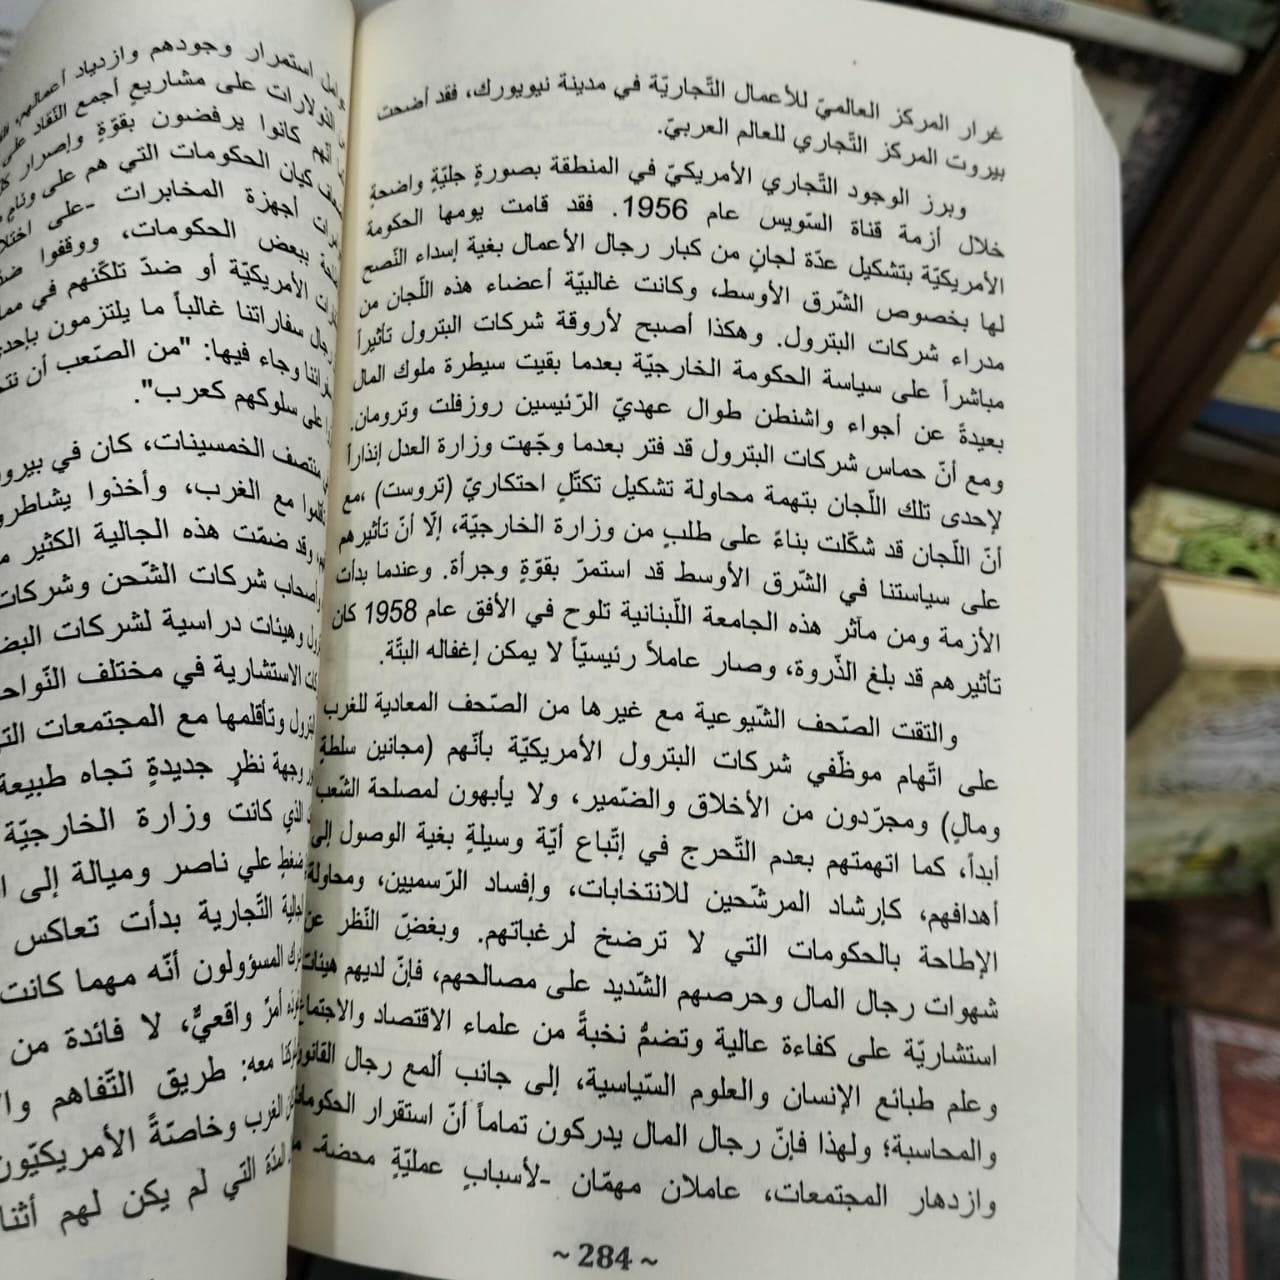 غرار المركز العالميّ للأعمال التّجاريّة في مدينة نيويورك، فقد أضحت
بيروت المركز التّجاري للعالم العربيّ.
وبرز الوجود التّجاري الأمريكيّ في المنطقة بصورةٍ جليّةٍ واضحةٍ
خلال أزمة قناة السّويس عام 1956. فقد قامت يومها الحكومة
الأمريكيّة بتشكيل عدّة لجانٍ من كبار رجال الأعمال بغية إسداء النّصح
لها بخصوص الشّرق الأوسط، وكانت غالبيّة أعضاء هذه اللّجان من
مدراء شركات البترول. وهكذا أصبح لأروقة شركات البترول تأثيراً
مباشراً على سياسة الحكومة الخارجيّة بعدما بقيت سيطرة ملوك المال
بعيدةً عن أجواء واشنطن طوال عهديّ الرّئيسين روزفلت وترومان.
ومع أنّ حماس شركات البترول قد فتر بعدما وجّهت وزارة العدل إنذاراً
لإحدى تلك اللّجان بتهمة محاولة تشكيل تكتّلٍ احتكاريّ (تروست) ،مع
أنّ اللّجان قد شكّلت بناءً على طلبٍ من وزارة الخارجيّة، إلّا أنّ تأثيرهم
على سياستنا في الشّرق الأوسط قد استمرّ بقوّةٍ وجرأة. وعندما بدأت
الأزمة ومن مآثر هذه الجامعة اللّبنانية تلوح في الأفق عام 1958 كان
تأثيرهم قد بلغ الذّروة، وصار عاملاً رئيسيّاً لا يمكن إغفاله البتّة.
والتقت الصّحف الشّيوعية مع غيرها من الصّحف المعادية للغرب
على اتّهام موظّفي شركات البترول الأمريكيّة بأنّهم (مجانين سلطةٍ
ومالٍ) ومجرّدون من الأخلاق والضّمير، ولا يأبهون لمصلحة الشّعب
أبداً، كما اتهمتهم بعدم التّحرج في إتّباع أيّة وسيلةٍ بغية الوصول إلى
أهدافهم، كإرشاد المرشّحين للانتخابات، وإفساد الرّسميين، ومحاولة
الإطاحة بالحكومات التي لا ترضخ لرغباتهم. وبغضّ النّظر عن
شهوات رجال المال وحرصهم الشّديد على مصالحهم، فإنّ لديهم هيئات
استشاريّة على كفاءة عالية وتضمُّ نخبةً من علماء الاقتصاد والاجتماع
وعلم طبائع الإنسان والعلوم السّياسية، إلى جانب ألمع رجال القانون
والمحاسبة؛ ولهذا فإنّ رجال المال يدركون تماماً أنّ استقرار الحكومات
وازدهار المجتمعات، عاملان مهمّان -لأسبابٍ عمليّةٍ محضة-
~ 284 ~
استمرار وجودهم وازدياد أعمالهم
على مشاريعٍ أجمع النّقاد على
كانوا يرفضون بقوّةٍ وإصرار
كيان الحكومات التي هم على وئامٍ
أجهزة المخابرات -على
ببعض الحكومات، ووقفوا
الأمريكيّة أو ضدّ تلكّئهم في
سفاراتنا غالباً ما يلتزمون بإحدى
وجاء فيها: "من الصّعب أن
على سلوكهم كعرب".
منتصف الخمسينات، كان في
مع الغرب، وأخذوا
وقد ضمّت هذه الجالية الكثير
شركات الشّحن وشركات
وهيئات دراسية لشركات
الاستشارية في مختلف
وتأقلمها مع المجتمعات
وجهة نظرٍ جديدةٍ تجاه طبيعة
الذي كانت وزارة الخارجيّة
علي ناصر وميالة إلى
التّجارية بدأت تعاكس
المسؤولون أنّه مهما كانت
أمرٌ واقعيٌّ، لا فائدة من
معه: طريق التّفاهم
الغرب وخاصّةً الأمريكيّون
التي لم يكن لهم